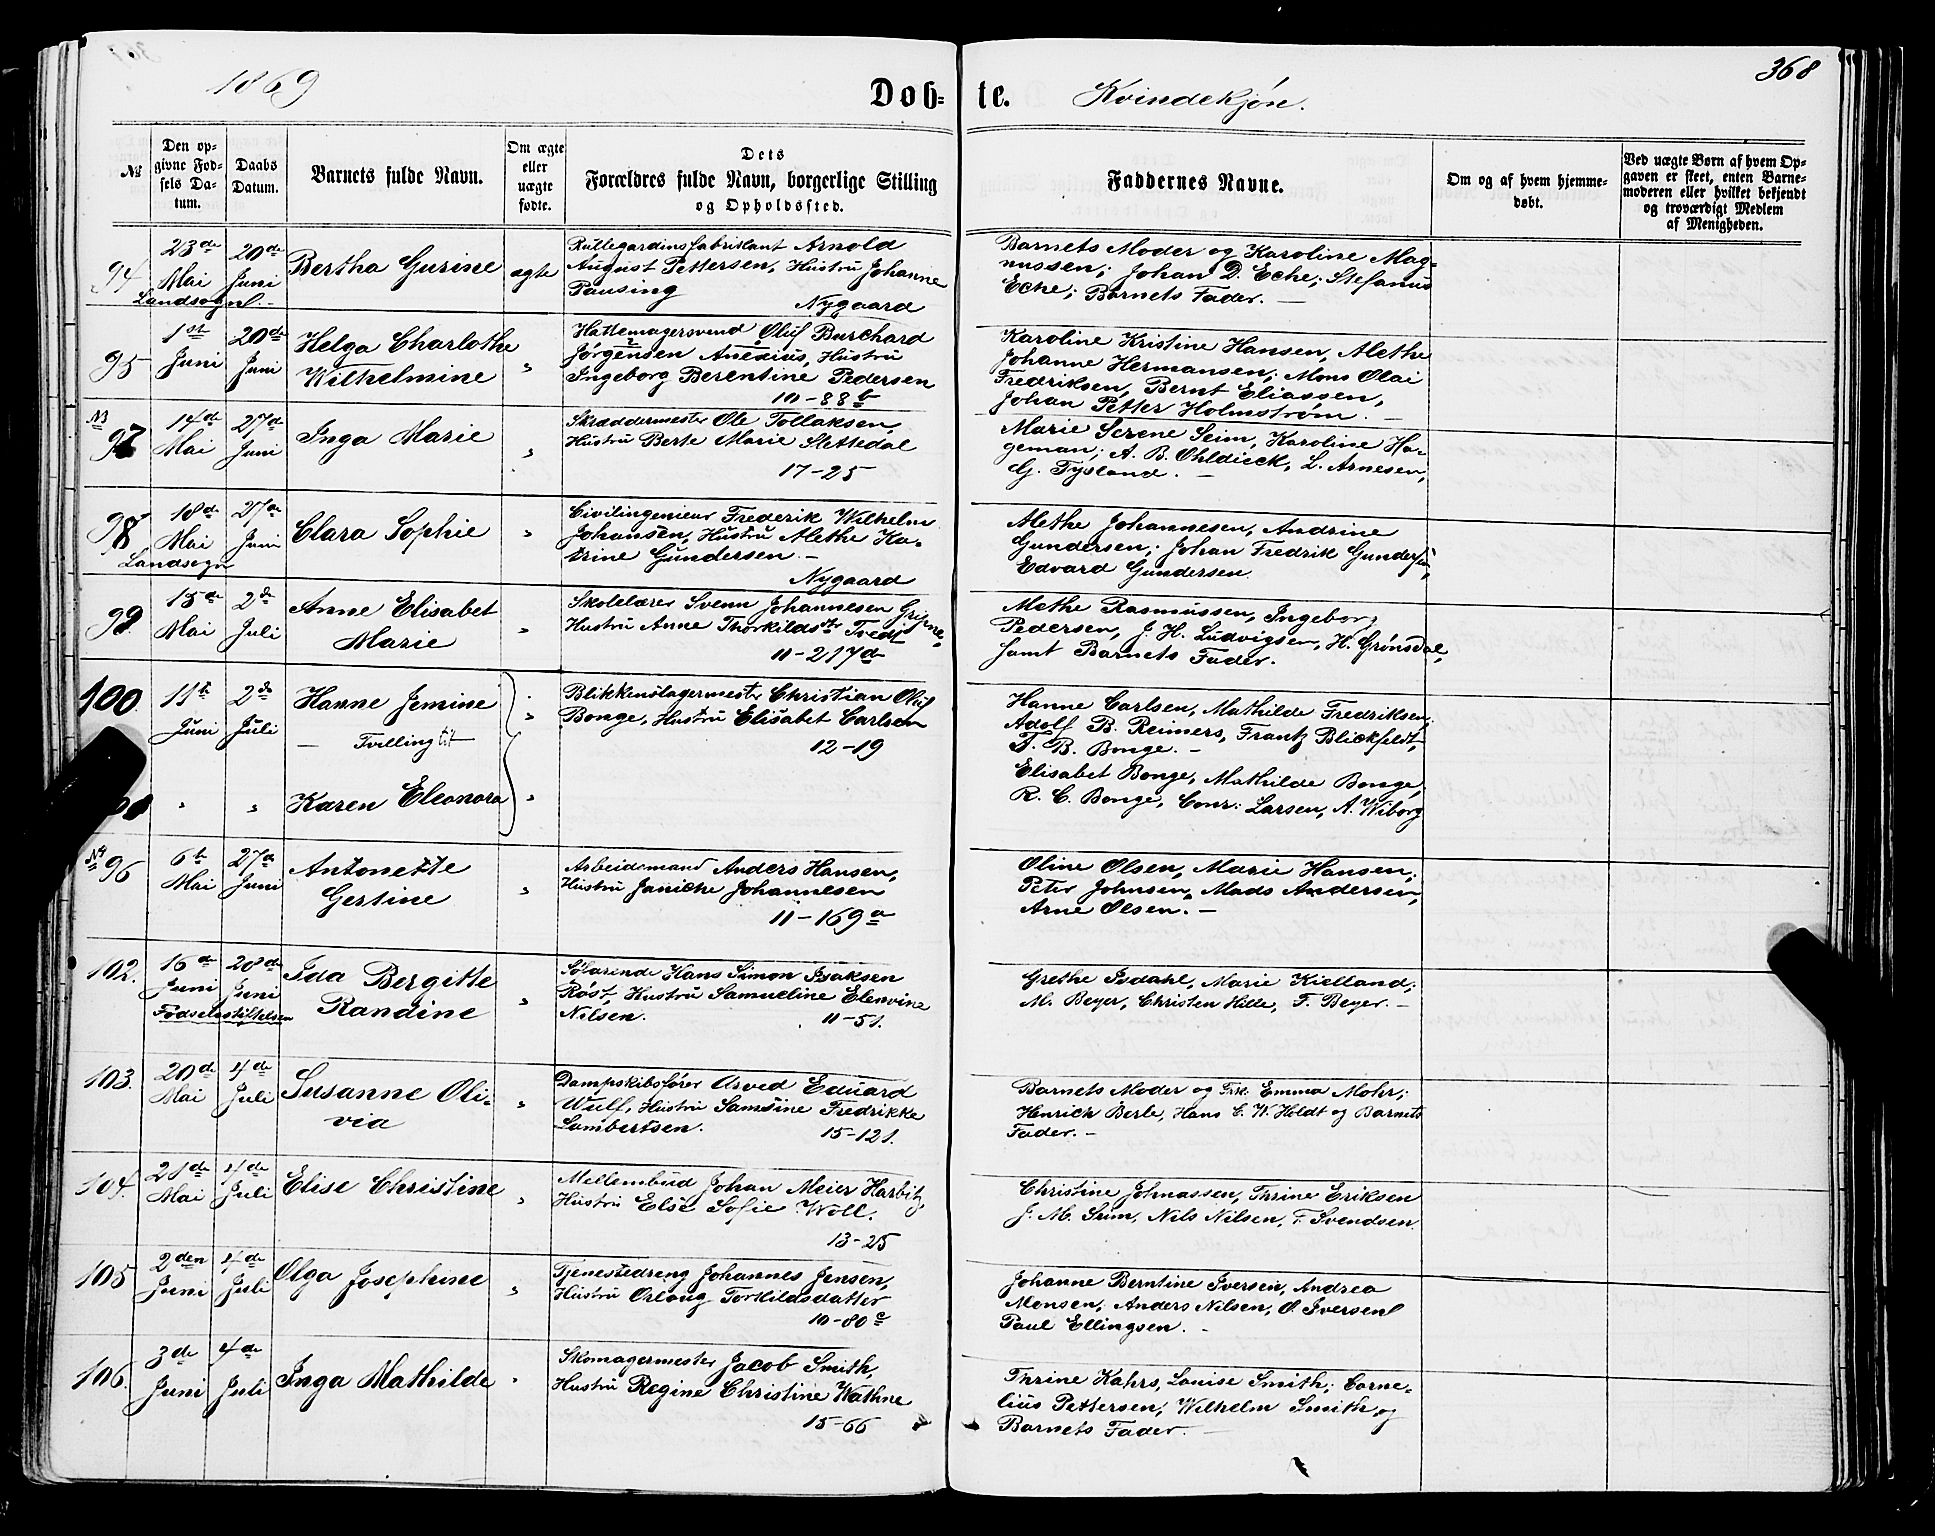 1869
Døb- te. Kvindekjøn.
368
№
Den op-
givne Fød-
sels Da-
tum.
Daabs
Datum.
Barnets fulde Navn.
Om ægte
eller
uægte
fødte.
Dets
Forældres fulde Navn, borgerlige Stilling
og Opholdssted.
Faddernes Navne.
Om og af hvem hjemme-
døbt.
Ved uægte Børn af hvem Op-
gaven er skeet, enten Barne-
moderen eller hvilket bekjendt
og troværdigt Medlem
af Menigheden.
94
23de
Mai
Landsogn
20de
Juni
Bertha Gurine
ægte
Rullegardinsfabrikant Arnold
August Pettersen, Hustru Johanne
Pausing
Nygaard
Barnets Moder og Karoline Mag-
nussen; Johan D. Eche; Stefanus
Eche; Barnets Fader. —
95
1st
Juni
20de
Juni
Helga Charlothe
Wilhelmine
"
Hattemagersvend Oluf Burchard
Jørgensen Anexius, Hustru
Ingeborg Berentine Pedersen
10-88b
Karoline Kristine Hansen, Alethe
Johanne Hermansen; Mons Olai
Fredriksen, Bernt Eliassen,
Johan Petter Holmstrøm. —
№
97
14de
Mai
27de
Juni
Inga Marie
"
Skræddermester Ole Tollaksen,
Hustru Berte Marie Slettedal
17-25
Marie Serene Seim, Karoline Ha-
geman; A. B. Ohldieck, L. Arnesen,
G. Tysland. —
98
18de
Mai
Landsogn
27de
Juni
Clara Sophie
"
Civilingenieur Frederik Wilhelm
Johansen, Hustru Alethe Ka-
trine Gundersen —
Nygaard
Alethe Johannesen, Andrine
Gundersen; Johan Fredrik Gundersen,
Edvard Gundersen.
99.
15de
Mai
2de
Juli
Anne Elisabet
Marie
"
Skolelærer Svenn Johannesen Gripne,
Hustru Anne Thorkildsdtr Tvedt
11-217d
Methe Rasmussen, Ingeborg
Pedersen, J. H. Ludvigsen, H. Grønsdal,
samt Barnets Fader.
100.
11te
Juni
2de
Juli
Hanne Jemine
— Tvilling til —
"
Blikkenslagermester Christian Oluf
Bonge, Hustru Elisabet Carlsen
12-19
Hanne Carlsen, Mathilde Fredriksen;
Adolf B. Reimers, Frantz Blickfeldt,
T. B. Bonge. —
" "
Karen Eleonora
"
Elisabet Bonge, Mathilde Bonge,
R. C. Bonge, Conr: Larsen, A. Wiborg
№
96
6te
Mai
27de
Juni
Antonette
Gertine
"
Arbeidsmand Anders Hansen,
Hustru Janicke Johannesen
11-169a
Oline Olsen, Marie Hansen;
Peter Johnsen, Mads Andersen,
Arne Olsen. —
102.
16de
Juni
Fødselsstiftelsen
28de
Juni
Ida Bergitte
Randine
"
Søfarende Hans Simon Isaksen
Røst, Hustru Samueline Elenvine
Nilsen. 11-51.
Grethe Isdahl, Marie Kielland;
M. Beyer, Christen Hille, F. Beyer. —
103.
20de
Mai
4de
Juli
Susanne Oli-
via
"
Dampskibsfører Arved Eduard
Wulf, Hustru Samsine Fredrikke
Lambertsen. 15-121.
Barnets Moder og Frk. Emma Mohr;
Henrich Berle, Hans C. W. Holdt og Barnets
Fader. —
104.
21de
Mai
4de
Juli
Elise Christine
"
Mellembud Johan Meier Harbitz,
Hustru Else Sofie Woll.
13-25
Christine Johnassen, Thrine Eriksen
J. M. Seim, Nils Nilsen, T. Svendsen
105
2den
Juni
4de
Juli
Olga Josephine
"
Tjenestedreng Johannes Jensen,
Hustru Orloug Torkildsdatter
10-80c
Johanne Berntine Iversen, Andrea
Monsen; Anders Nilsen, O. Iversen
Paul Ellingsen. —
106.
3de
Juni
4de
Juli
Inga Mathilde
"
Skomagermester Jacob Smith,
Hustru Regine Christine Wathne
15-66
Thrine Kahrs, Louise Smith; Corne-
lius Pettersen, Wilhelm Smith, og
Barnets Fader. —